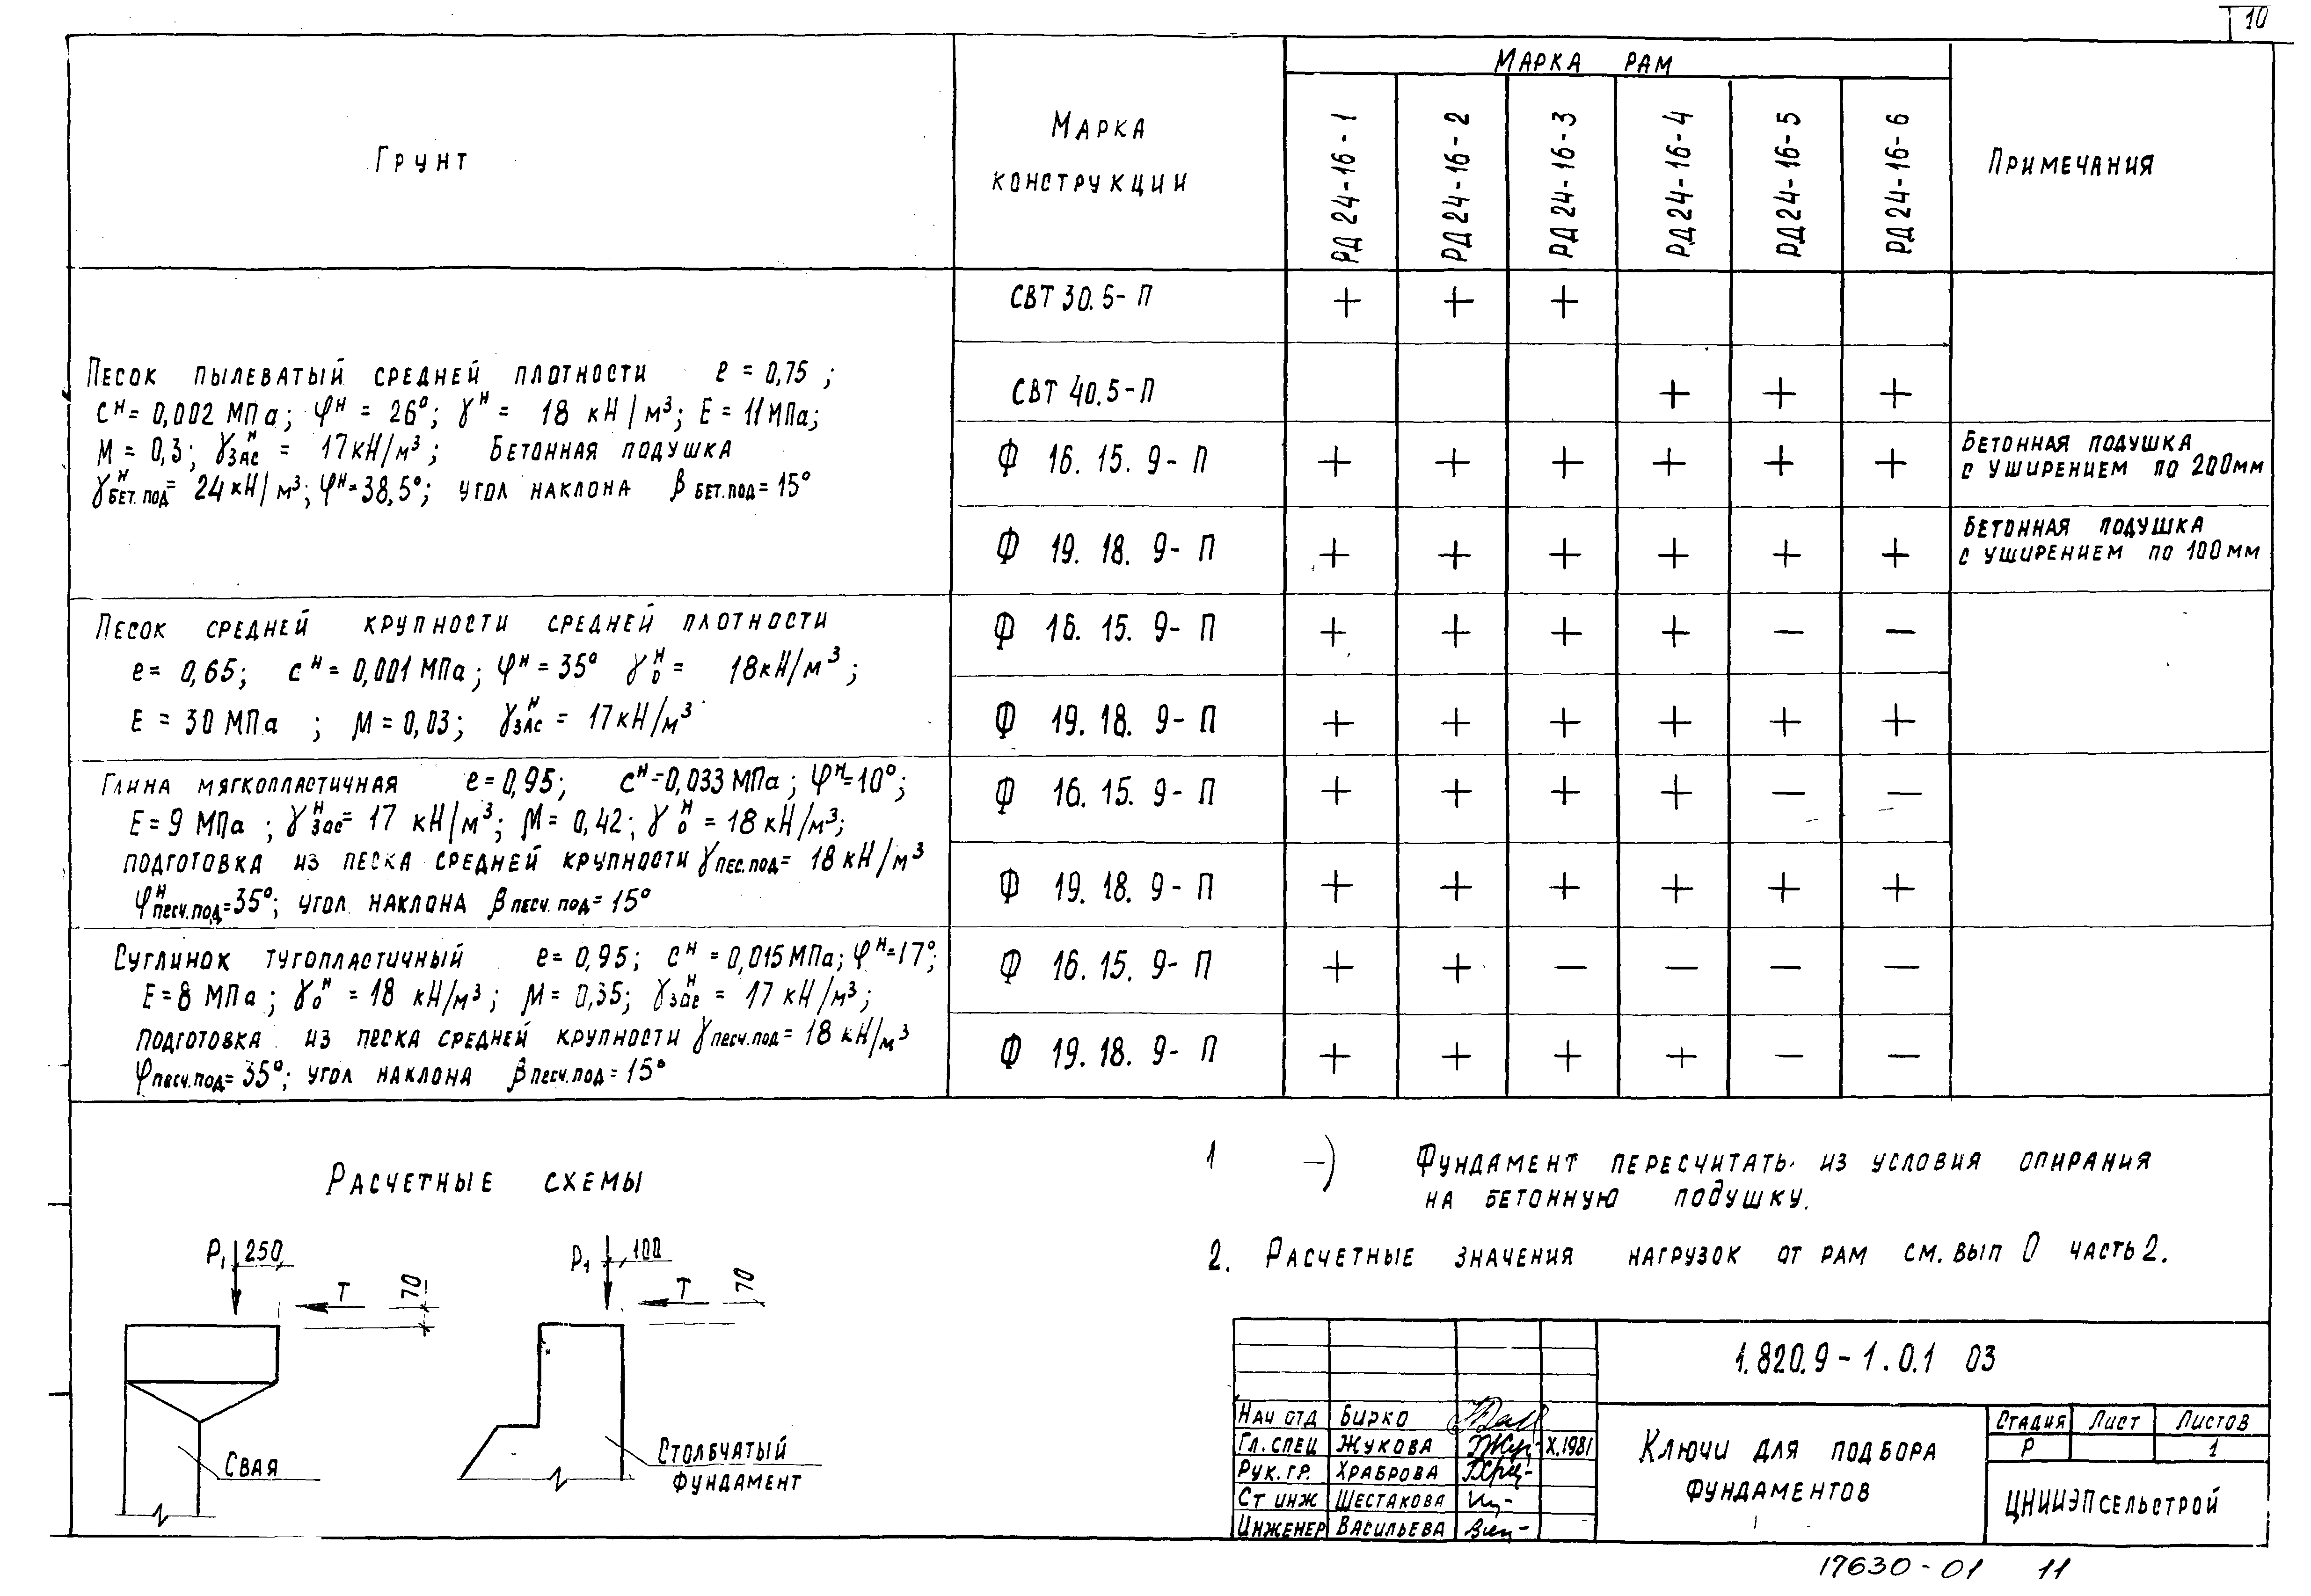 10
Грунт
Марка
конструкции
Марка рам
РД 24-16-1
РД 24-16-2
РД 24-16-3
РД 24-16-4
РД 24-16-5
РД 24-16-6
Примечания
Песок пылеватый средней плотности e = 0,75 ;
cᴴ = 0,002 МПа; φᴴ = 26°; γᴴ = 18 кН/м³; E = 11 МПа;
M = 0,3; γᴴзас = 17 кН/м³; Бетонная подушка
γᴴбет.под = 24 кН/м³; φᴴ = 38,5°; угол наклона β бет.под = 15°
СВТ 30.5-П + + +
СВТ 40.5-П + + +
Ф 16. 15. 9-П + + + + + + Бетонная подушка
с уширением по 200мм
Ф 19. 18. 9-П + + + + + + Бетонная подушка
с уширением по 100мм
Песок средней крупности средней плотности
e = 0,65; cᴴ = 0,001 МПа; φᴴ = 35° γ₀ᴴ = 18 кН/м³;
E = 30 МПа ; M = 0,03; γᴴзас = 17 кН/м³
Ф 16. 15. 9-П + + + + — —
Ф 19. 18. 9-П + + + + + +
Глина мягкопластичная e = 0,95; cᴴ = 0,033 МПа; φᴴ = 10°;
E = 9 МПа ; γᴴзас = 17 кН/м³; M = 0,42; γ₀ᴴ = 18 кН/м³;
подготовка из песка средней крупности γпес.под = 18 кН/м³
φᴴпесч.под = 35°; угол наклона βпесч.под = 15°
Ф 16. 15. 9-П + + + + — —
Ф 19. 18. 9-П + + + + + +
Суглинок тугопластичный e = 0,95; cᴴ = 0,015 МПа; φᴴ = 17°;
E = 8 МПа ; γ₀ᴴ = 18 кН/м³; M = 0,35; γᴴзас = 17 кН/м³;
подготовка из песка средней крупности γпесч.под = 18 кН/м³
φпесч.под = 35°; угол наклона βпесч.под = 15°
Ф 16. 15. 9-П + + — — — —
Ф 19. 18. 9-П + + + + — —
Расчетные схемы
P₁ 250
T
70
Свая
P₁ 100
T
70
Столбчатый
фундамент
1 —) Фундамент пересчитать из условия опирания
на бетонную подушку.
2. Расчетные значения нагрузок от рам см. вып 0 часть 2.
1.820.9-1.0.1 03
Нач отд Бирко
Гл. спец Жукова X.1981
Рук. гр. Храброва
Ст инж Шестакова
Инженер Васильева
Ключи для подбора
фундаментов
Стадия Лист Листов
Р 1
ЦНИИЭПсельстрой
17630-01 11